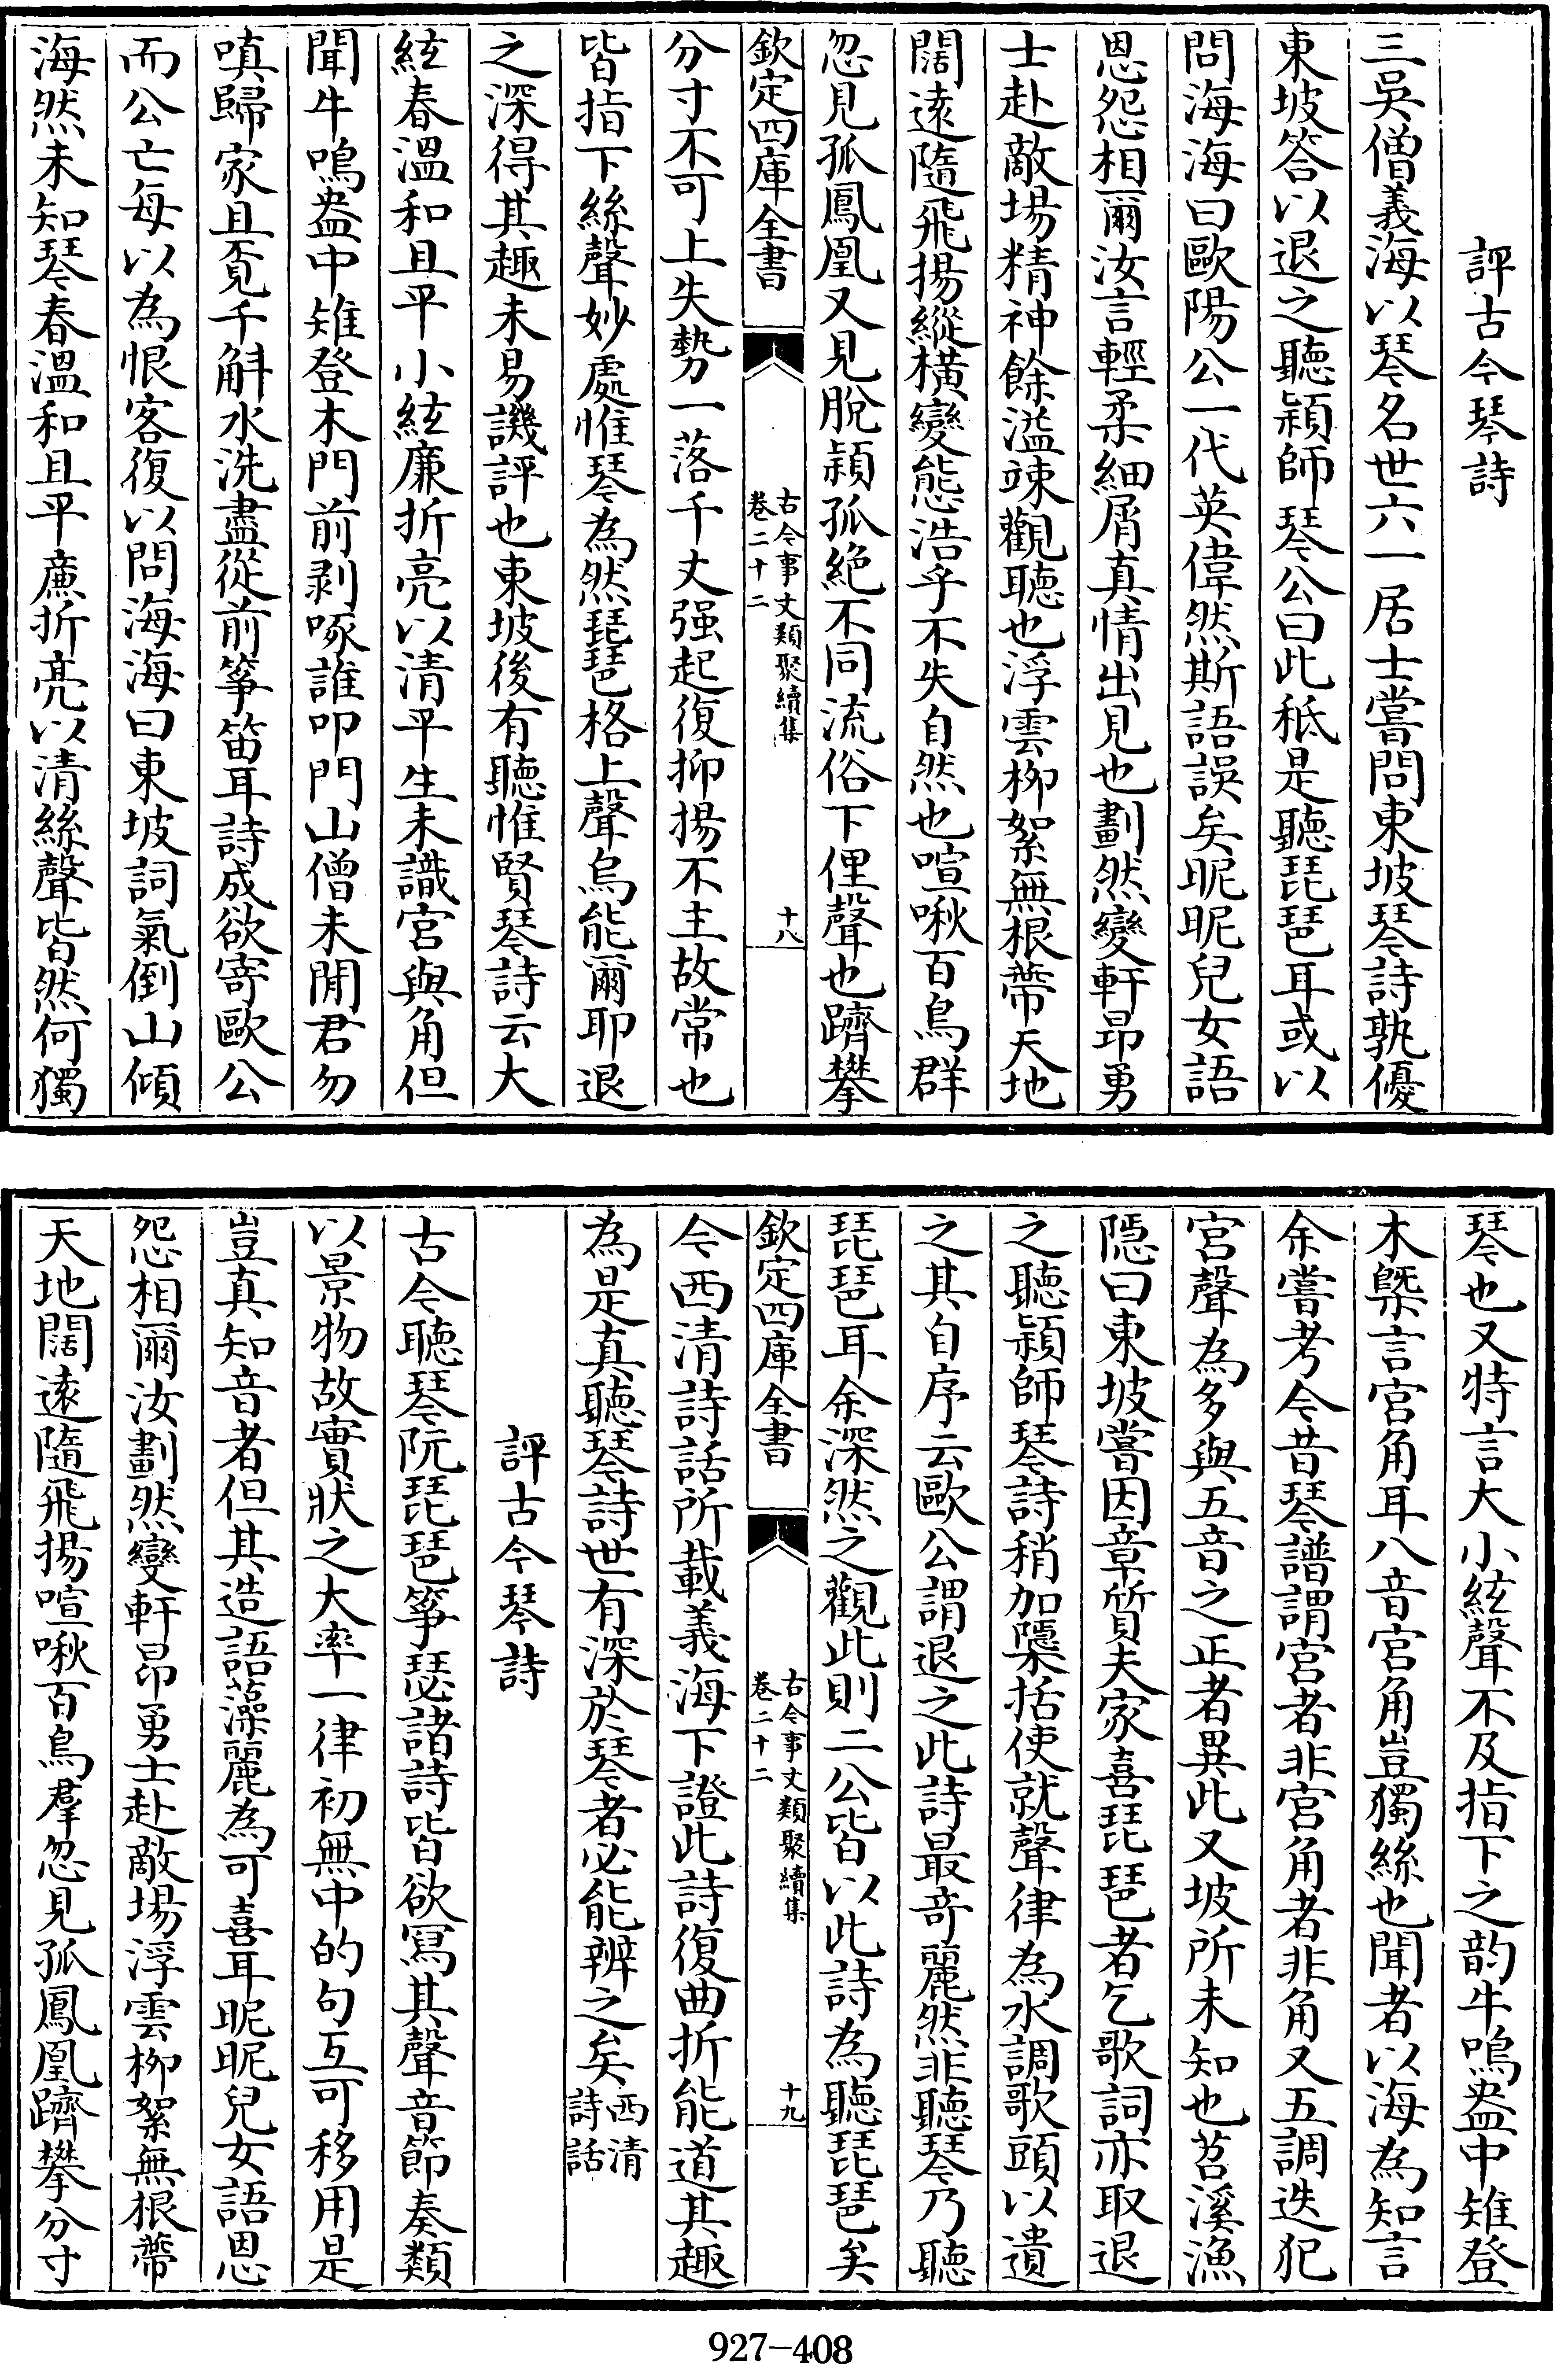 評古今琴詩
三吳僧義海以琴名世六一居士嘗問東坡琴詩孰優
東坡答以退之聽穎師琴公曰此秪是聽琵琶耳或以
問海海曰歐陽公一代英偉然斯語誤矣昵昵兒女語
恩怨相爾汝言輕柔細屑真情出見也劃然變軒昂勇
士赴敵場精神餘溢竦觀聽也浮雲柳絮無根蔕天地
闊遠隨飛揚縱橫變態浩乎不失自然也喧啾百鳥群
忽見孤鳳凰又見脫穎孤絶不同流俗下俚聲也躋攀
欽定四庫全書
古今事文類聚續集
卷二十二
十八
分寸不可上失勢一落千丈强起復抑揚不主故常也
皆指下絲聲妙處惟琴為然琵琶格上聲烏能爾耶退
之深得其趣未易譏評也東坡後有聽惟賢琴詩云大
絃春溫和且平小絃廉折亮以清平生未識宮與角但
聞牛鳴盎中雉登木門前剥啄誰叩門山僧未閒君勿
嗔歸家且覔千斛水洗盡從前箏笛耳詩成欲寄歐公
而公亡每以為恨客復以問海海曰東坡詞氣倒山傾
海然未知琴春溫和且平廉折亮以清絲聲皆然何獨
琴也又特言大小絃聲不及指下之韵牛鳴盎中雉登
木槩言宮角耳八音宮角豈獨絲也聞者以海為知言
余嘗考今昔琴譜謂宮者非宮角者非角又五調迭犯
宮聲為多與五音之正者異此又坡所未知也苕溪漁
隱曰東坡嘗因章質夫家喜琵琶者乞歌詞亦取退
之聽穎師琴詩稍加隱括使就聲律為水調歌頭以遺
之其自序云歐公謂退之此詩最竒麗然非聽琴乃聽
琵琶耳余深然之觀此則二公皆以此詩為聽琵琶矣
欽定四庫全書
古今事文類聚續集
卷二十二
十九
今西清詩話所載義海下證此詩復曲折能道其趣
為是真聽琴詩世有深於琴者必能辨之矣西清詩話
評古今琴詩
古今聽琴阮琵琶箏瑟諸詩皆欲寫其聲音節奏類
以景物故實狀之大率一律初無中的句互可移用是
豈真知音者但其造語藻麗為可喜耳昵昵兒女語恩
怨相爾汝劃然變軒昂勇士赴敵場浮雲柳絮無根蔕
天地闊遠隨飛揚喧啾百鳥羣忽見孤鳳凰躋攀分寸
927-408